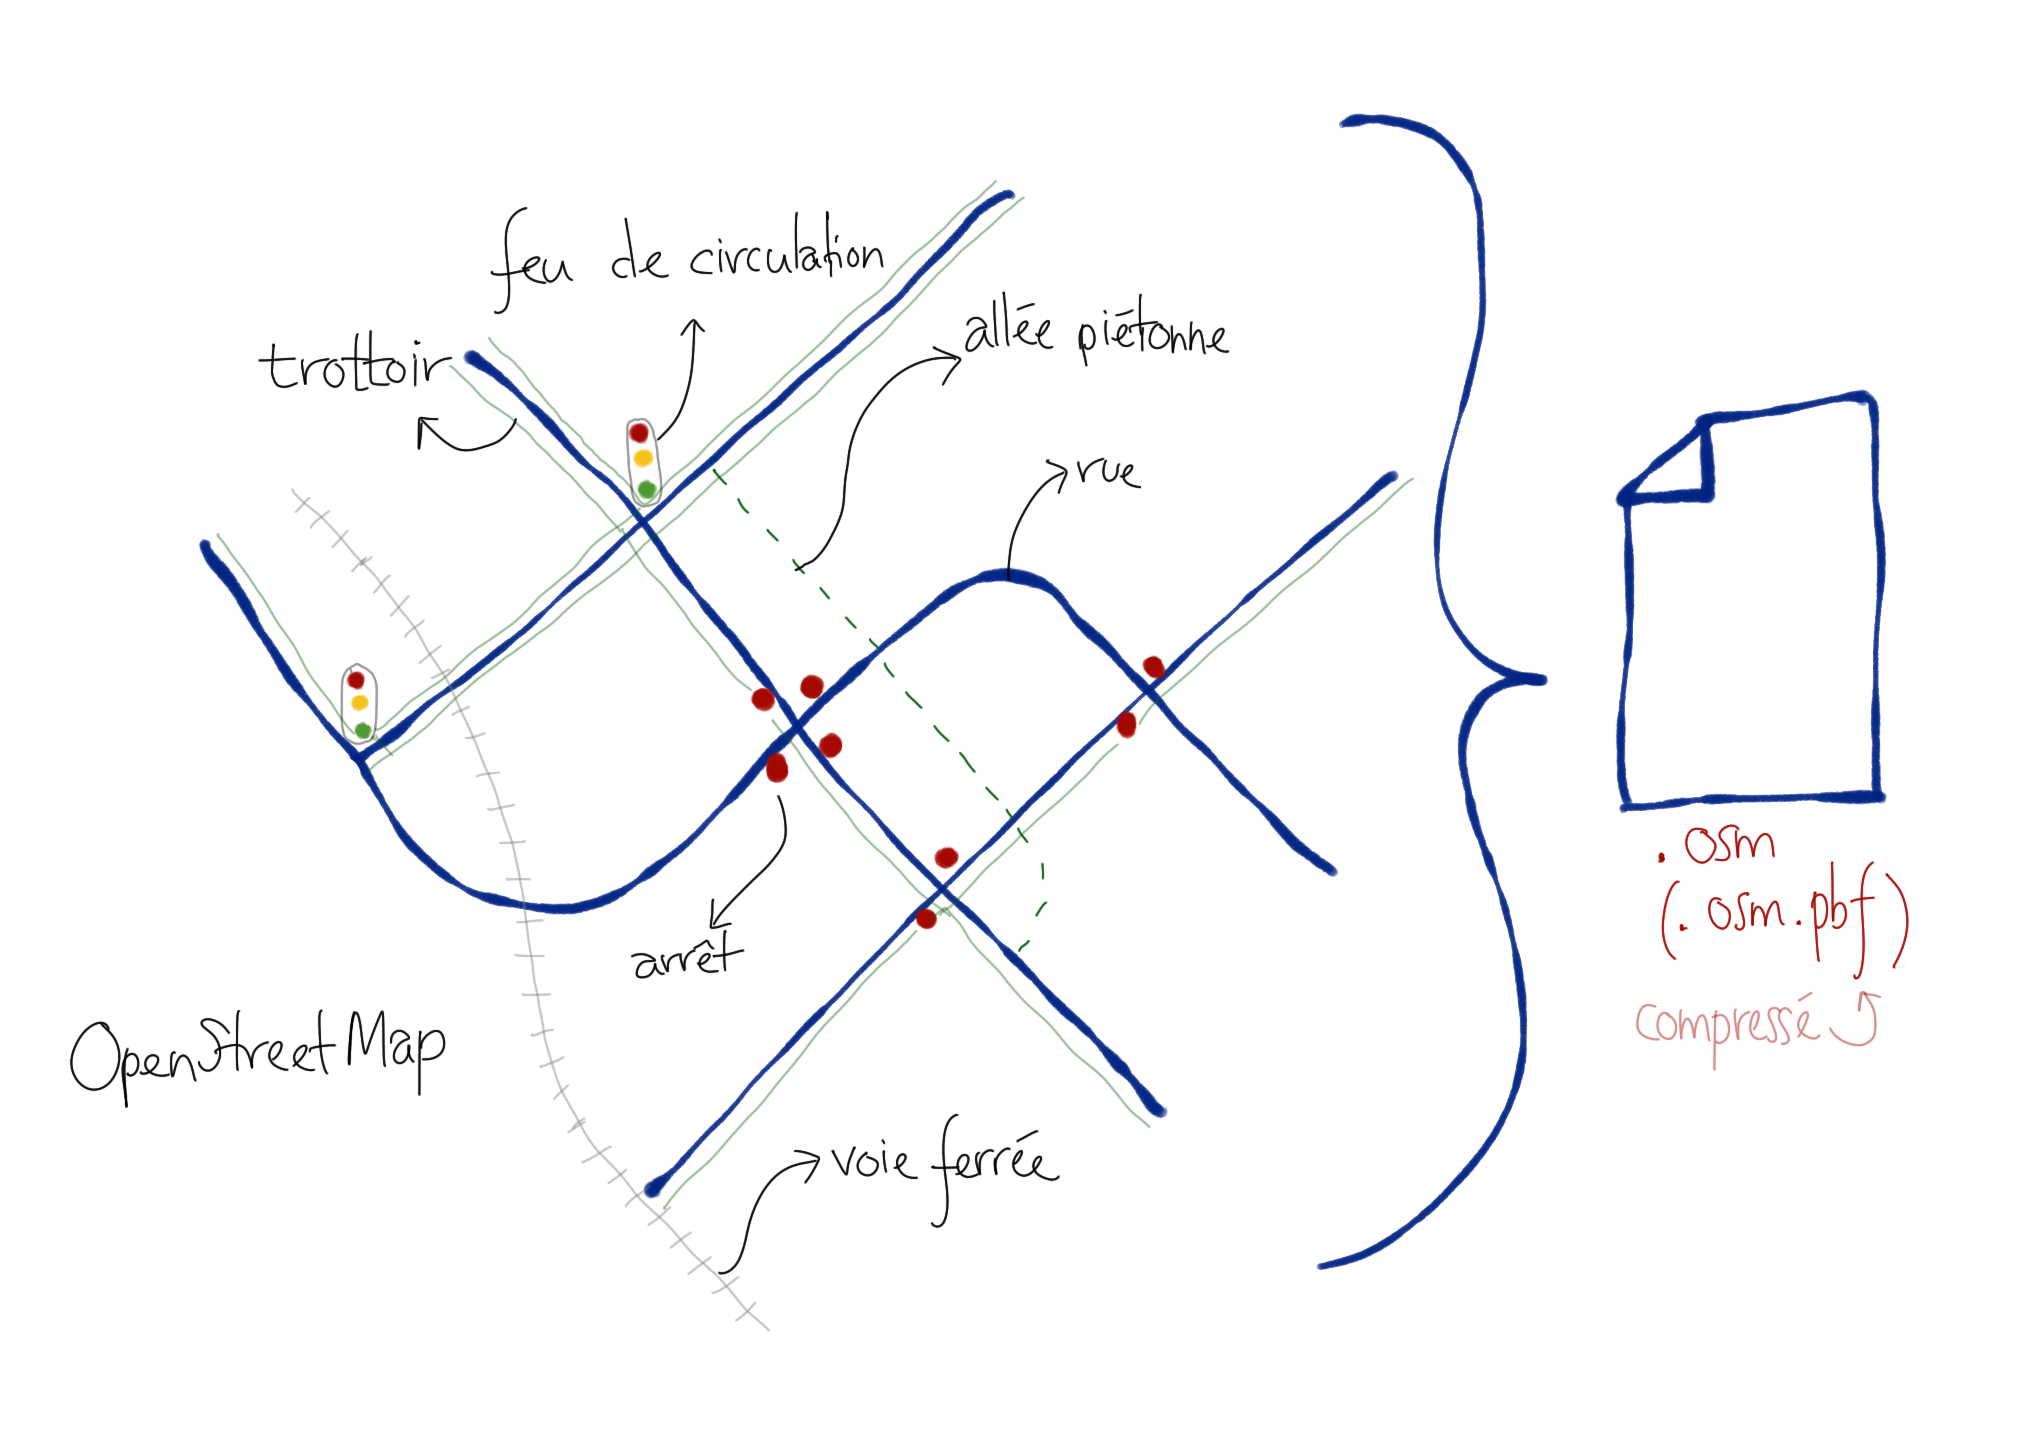 feu de circulation
trottoir
allée piétonne
rue
arrêt
OpenStreetMap
voie ferrée
.osm
(.osm.pbf)
compressé